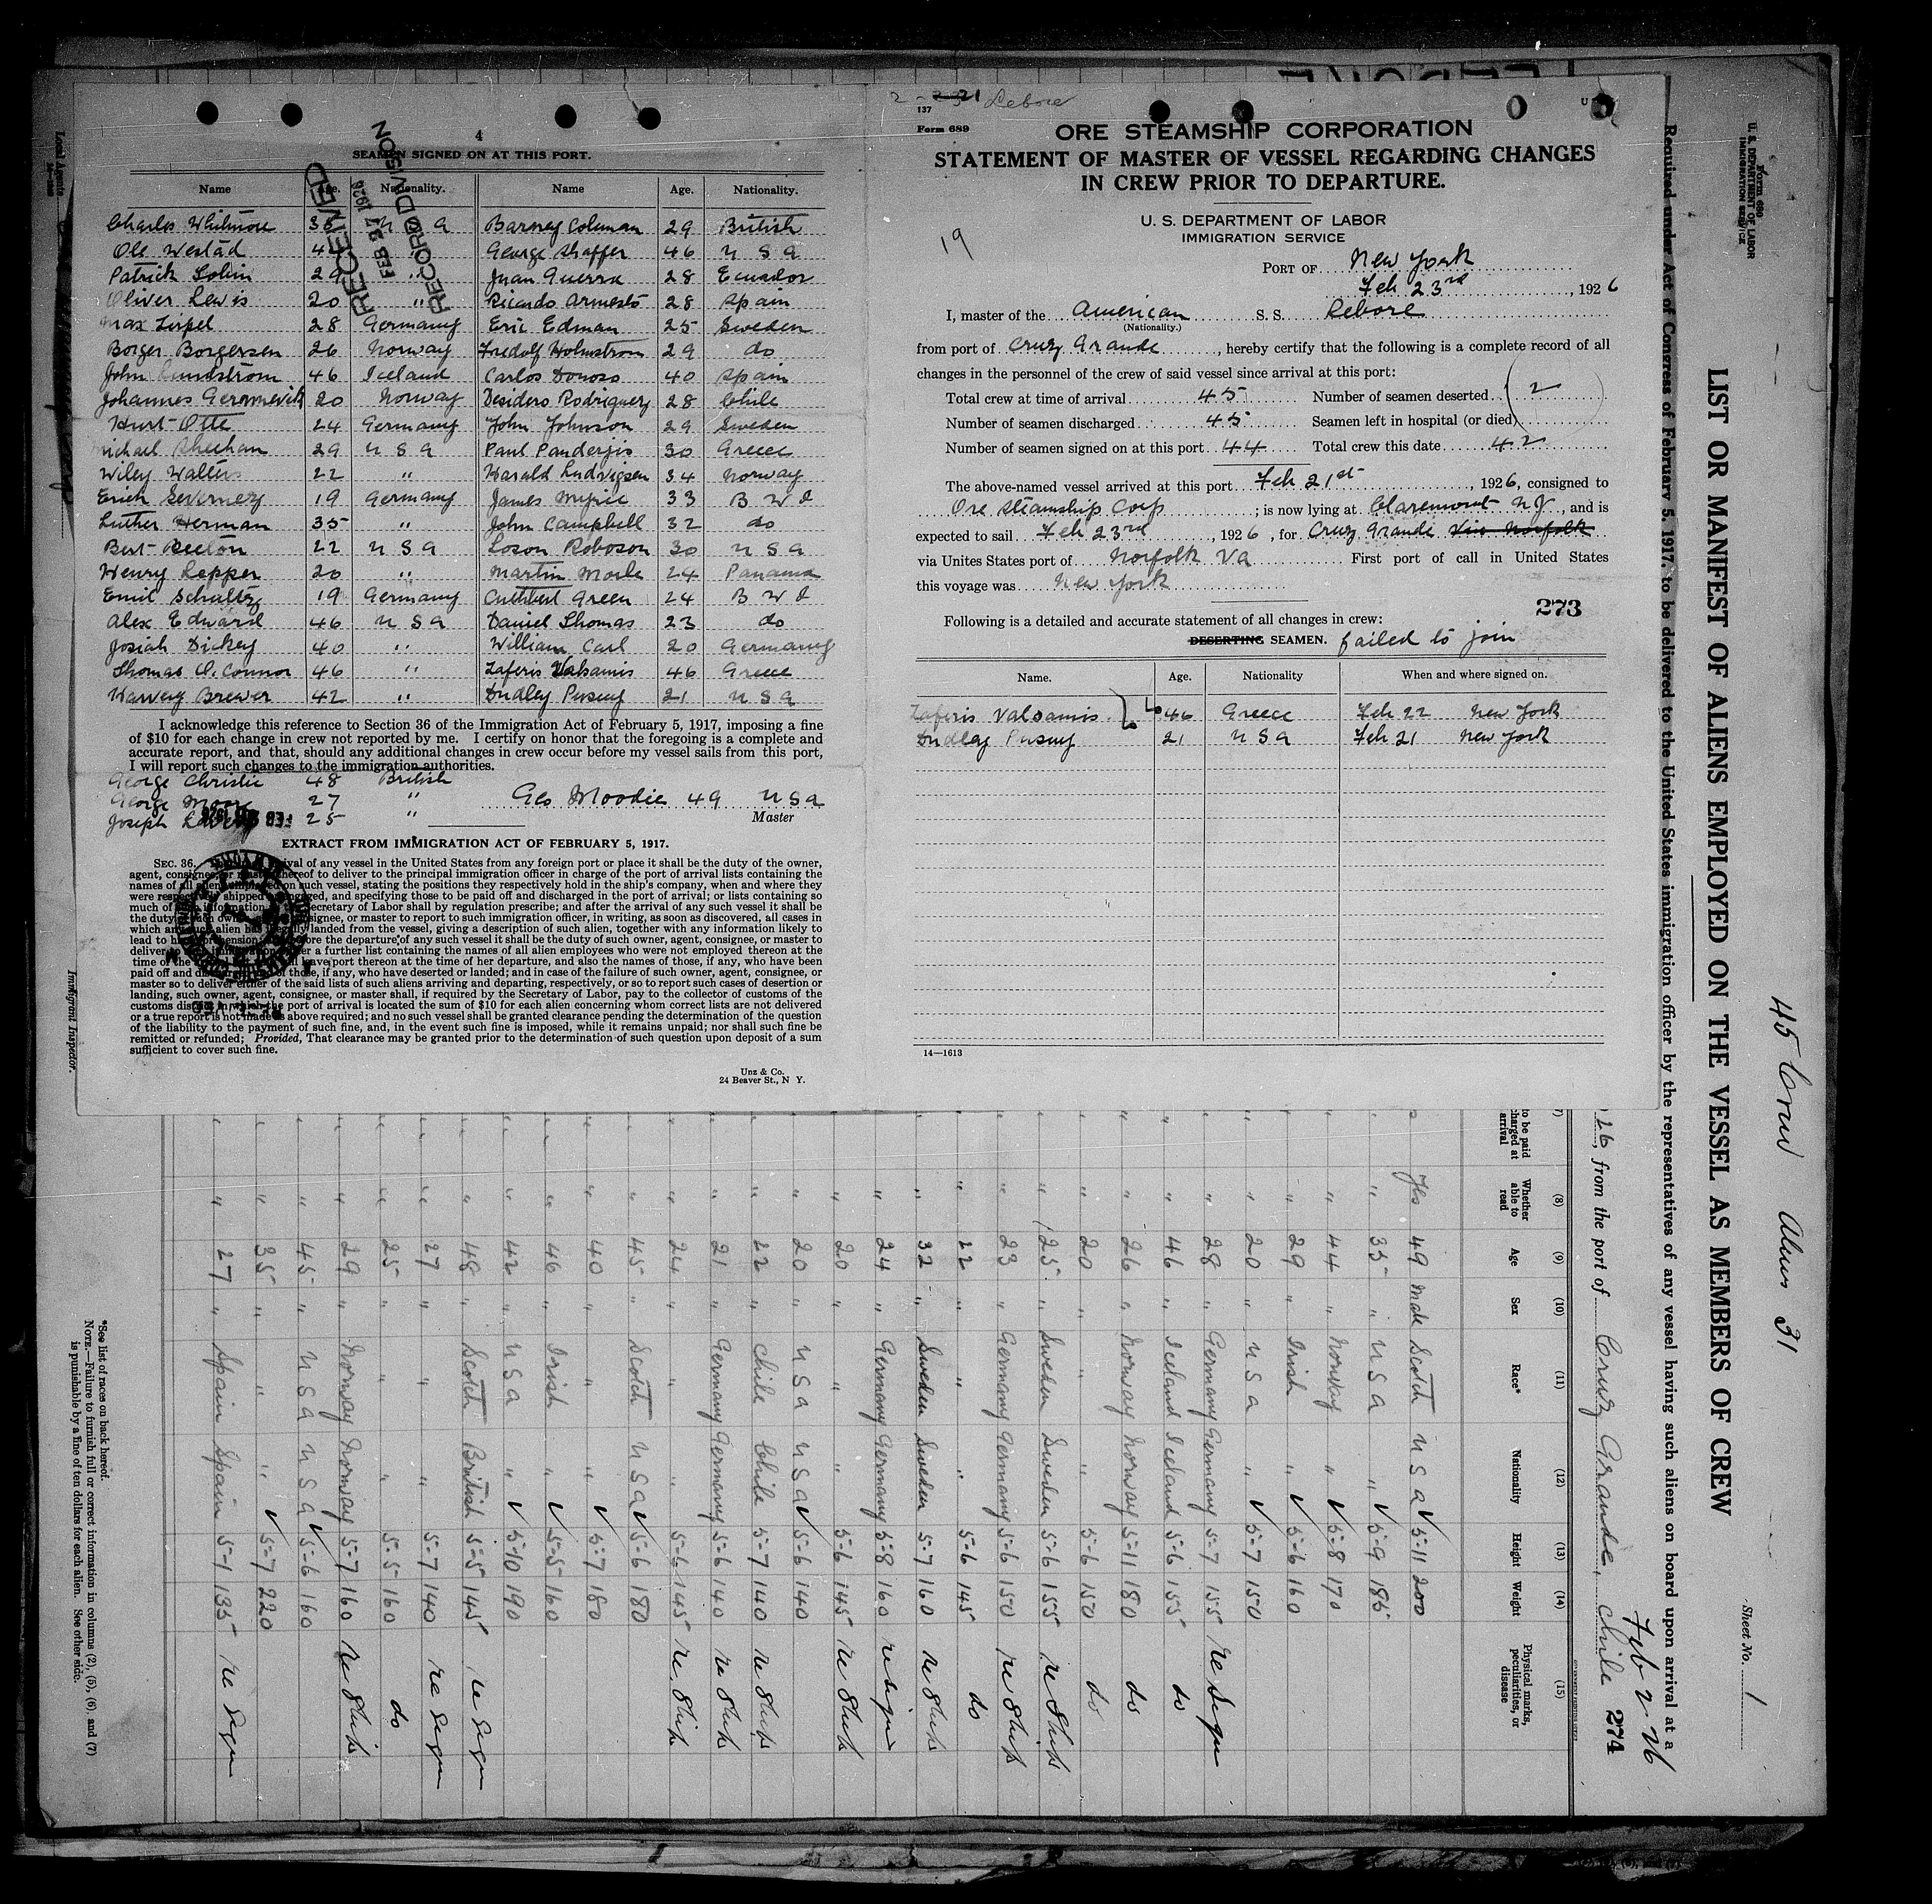 4
SEAMEN SIGNED ON AT THIS PORT.
Name Age. Nationality. Name Age. Nationality.
Charles Whitmore 35 U S A Barney Coleman 29 British
Ole Westad 4 George Shaffer 46 U S A
Patrick 29 " Juan Guerra 28 Ecuador
Oliver Lewis 20 " Ricardo Armesto 28 Spain
Max 28 Germany Eric Edman 25 Sweden
Borger Borgersen 26 Norway Fredolf Holmstrom 29 do
John Lundstrom 46 Iceland Carlos Donoso 40 Spain
Johannes 20 Norway Desidero Rodriguez 28 Chile
Kurt Otte 24 Germany John Johnson 29 Sweden
Michael Sheehan 29 U S A Paul Panderjis 30 Greece
Wiley Walters 22 " Harald Ludvigsen 34 Norway
Erich 19 Germany James 33 B W I
Luther Herman 35 " John Campbell 32 do
Bert Beeton 22 U S A Loson Roboson 30 U S A
Henry Lepper 20 " Martin 24 Panama
Emil Schultz 19 Germany Cuthbert Green 24 B W I
Alex Edward 46 U S A Daniel Thomas 23 do
Josiah Dickey 40 " William Carl 20 Germany
Thomas O. Connor 46 " Zaferis Valsamis 46 Greece
Harvey Brewer 42 " Dudley 21 U S A
RECEIVED
FEB 27 1926
RECORD DIVISION
I acknowledge this reference to Section 36 of the Immigration Act of February 5, 1917, imposing a fine
of $10 for each change in crew not reported by me. I certify on honor that the foregoing is a complete and
accurate report, and that, should any additional changes in crew occur before my vessel sails from this port,
I will report such changes to the immigration authorities.
George Christie 48 British
George 27 " Geo Moodie 49 U S A
Joseph 25 " Master
EXTRACT FROM IMMIGRATION ACT OF FEBRUARY 5, 1917.
SEC. 36. arrival of any vessel in the United States from any foreign port or place it shall be the duty of the owner,
agent, consignee, or master thereof to deliver to the principal immigration officer in charge of the port of arrival lists containing the
names of all aliens employed on such vessel, stating the positions they respectively hold in the ship's company, when and where they
were respectively shipped or engaged, and specifying those to be paid off and discharged in the port of arrival; or lists containing so
much of such information as the Secretary of Labor shall by regulation prescribe; and after the arrival of any such vessel it shall be
the duty of such owner, agent, consignee, or master to report to such immigration officer, in writing, as soon as discovered, all cases in
which any such alien has illegally landed from the vessel, giving a description of such alien, together with any information likely to
lead to his apprehension; and before the departure of any such vessel it shall be the duty of such owner, agent, consignee, or master to
deliver a further list containing the names of all alien employees who were not employed thereon at the
time of the arrival but who will leave port thereon at the time of her departure, and also the names of those, if any, who have been
paid off and discharged, and of those, if any, who have deserted or landed; and in case of the failure of such owner, agent, consignee, or
master so to deliver either of the said lists of such aliens arriving and departing, respectively, or so to report such cases of desertion or
landing, such owner, agent, consignee, or master shall, if required by the Secretary of Labor, pay to the collector of customs of the
customs district in which the port of arrival is located the sum of $10 for each alien concerning whom correct lists are not delivered
or a true report is not made as above required; and no such vessel shall be granted clearance pending the determination of the question
of the liability to the payment of such fine, and, in the event such fine is imposed, while it remains unpaid; nor shall such fine be
remitted or refunded; Provided, That clearance may be granted prior to the determination of such question upon deposit of a sum
sufficient to cover such fine.
Unz & Co.
24 Beaver St., N Y.
Lebore
137
Form 689
ORE STEAMSHIP CORPORATION
STATEMENT OF MASTER OF VESSEL REGARDING CHANGES
IN CREW PRIOR TO DEPARTURE.
U. S. DEPARTMENT OF LABOR
IMMIGRATION SERVICE
19
PORT OF New York
Feb 23rd, 1926
I, master of the American S. S. Lebore
(Nationality.)
from port of Cruz Grande, hereby certify that the following is a complete record of all
changes in the personnel of the crew of said vessel since arrival at this port:
Total crew at time of arrival 45 Number of seamen deserted 2
Number of seamen discharged 45 Seamen left in hospital (or died)
Number of seamen signed on at this port 44 Total crew this date 42
The above-named vessel arrived at this port Feb 21st, 1926, consigned to
Ore Steamship Corp; is now lying at Claremont NJ, and is
expected to sail Feb 23rd, 1926, for Cruz Grande via Norfolk
via Unites States port of Norfolk Va First port of call in United States
this voyage was New York
273
Following is a detailed and accurate statement of all changes in crew:
DESERTING SEAMEN. failed to join
Name. Age. Nationality When and where signed on.
Zaferis Valsamis 46 Greece Feb 22 New York
Dudley 21 U S A Feb 21 New York
14—1613
Form 680
U. S. DEPARTMENT OF LABOR
IMMIGRATION SERVICE
45 Crew Aliens 31
Sheet No. 1
LIST OR MANIFEST OF ALIENS EMPLOYED ON THE VESSEL AS MEMBERS OF CREW
Required under Act of Congress of February 5, 1917, to be delivered to the United States immigration officer by the representatives of any vessel having such aliens on board upon arrival at a
26, from the port of Cruz Grande, Chile 274
(8) (9) (10) (11) (12) (13) (14) (15)
to be paid charged at arrival Whether able to read Age Sex Race* Nationality Height Weight Physical marks, peculiarities, or disease
Yes 49 Male Scotch U S A 5-11 200
" 35 " U S A " 5-9 185
" 44 " Norway " 5-8 170
" 29 " Irish " 5-6 160
" 20 " U S A " 5-7 150
" 28 " Germany Germany 5-7 155 re sign
" 46 " Iceland Iceland 5-6 155 do
" 26 " Norway Norway 5-11 180 do
" 20 " " " 5-6 150 do
" 25 " Sweden Sweden 5-6 155 re ships
" 23 " Germany Germany 5-6 150 re ships
" 22 " " " 5-6 145 do
" 32 " Sweden Sweden 5-7 160 re ships
" 24 " Germany Germany 5-8 160 re sign
" 20 " " " 5-6 145 re ships
" 20 " U S A U S A 5-6 140
" 22 " Chile Chile 5-7 140 re ships
" 21 " Germany Germany 5-6 140 re ships
" 24 " " " 5-6 145 re ships
" 45 " Scotch U S A 5-6 180
" 40 " " " 5-7 180
" 46 " Irish " 5-5 160
" 42 " U S A " 5-10 190
" 48 " Scotch British 5-5 145 re sign
" 27 " " " 5-7 140 re sign
" 25 " " " 5-5 160 do
" 29 " Norway Norway 5-7 160 re ships
" 45 " U S A U S A 5-6 160
" 35 " " " 5-7 220
" 27 " Spain Spain 5-1 135 re sign
*See list of races on back hereof.
NOTE.—Failure to furnish full or correct information in columns (2), (5), (6), and (7)
is punishable by a fine of ten dollars for each alien. See other side.
Local Agents
Immigrant Inspector.